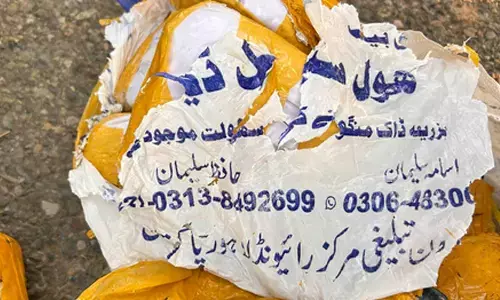 ہول سیل ڈیلر
بزریعہ ڈاک منگوانے کی سہولت موجود ہے
اسامہ سلیمان حافظ سلیمان
31-0313-8492699 0306-48300
تبلیغی مرکز رائیونڈ لاہور پاکستان